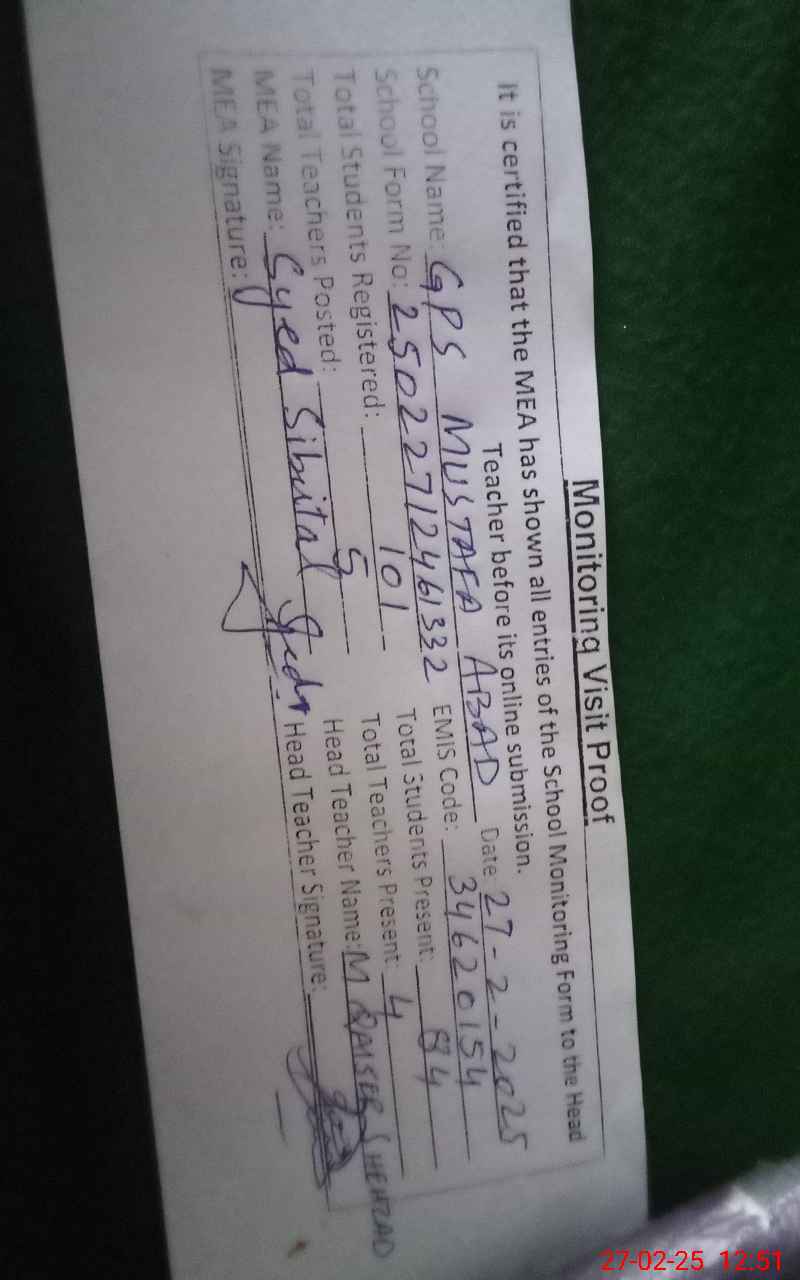 Monitoring Visit Proof
It is certified that the MEA has shown all entries of the School Monitoring Form to the Head
Teacher before its online submission.
School Name: GPS MUSTAFA ABAD Date 27-2-2025
School Form No: 25022712461332 EMIS Code: 34620154
Total Students Registered: 101 Total Students Present: 84
Total Teachers Posted: 5 Total Teachers Present: 4
MEA Name: Syed Head Teacher Name: M SHEHZAD
MEA Signature: Head Teacher Signature:
27-02-25 12:51